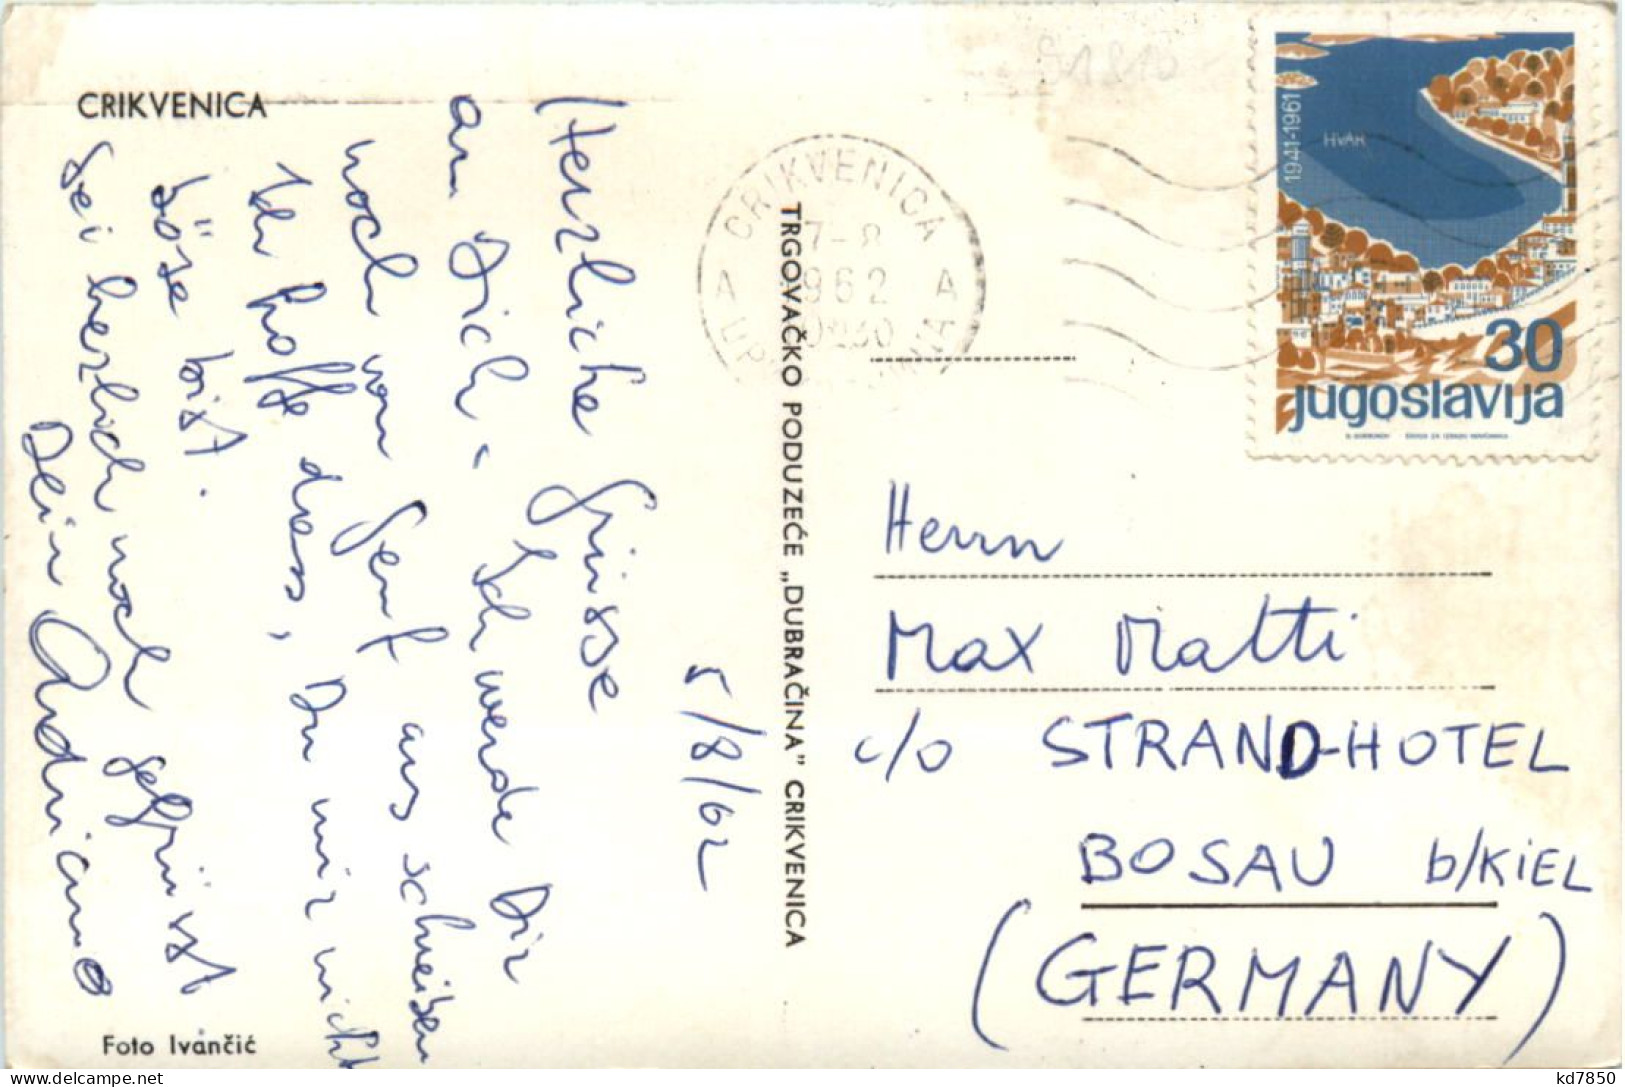 CRIKVENICA
5/8/62
Herzliche Grüsse
an Dich. Ich werde Dir
noch von Genf aus schreiben
Ich hoffe dass, Du mir nicht
böse bist.
Sei herzlich noch gegrüsst
Dein Andriano
Foto Ivančić
TRGOVAČKO PODUZEĆE „DUBRAČINA” CRIKVENICA
CRIKVENICA
7-8
962
A A
1941-1961
HVAR
30
jugoslavija
Herrn
Max Matti
c/o STRAND-HOTEL
BOSAU b/KiEL
(GERMANY)
kd7850